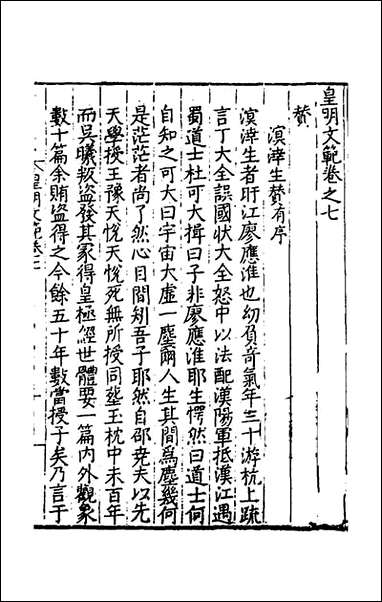 皇明文範卷之七
贊
溟涬生贊有序
溟涬生者旴江廖應淮也幼負奇氣年三十游杭上疏
言丁大全誤國狀大全怒中以法配漢陽軍抵漢江遇
蜀道士杜可大揖曰子非廖應淮耶生愕然曰道士何
自知之可大曰宇宙大虛一塵爾人生其間爲塵幾何
是茫茫者尚了然心目間矧吾子耶然自邵堯夫以先
天學授王豫天悅天悅死無所授同塟玉枕中未百年
而吳曦叛盗發其冢得皇極經世體要一篇內外觀象
數十篇余賄盗得之今餘五十年數當授子矣乃言于
皇明文範卷七